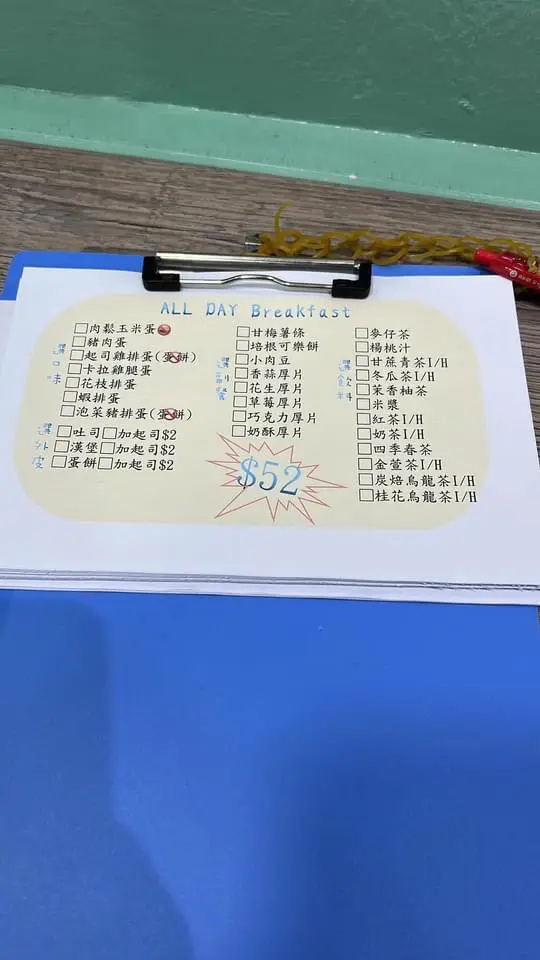 ALL DAY Breakfast
選口味
□肉鬆玉米蛋
□豬肉蛋
□起司雞排蛋(蛋餅)
□卡拉雞腿蛋
□花枝排蛋
□蝦排蛋
□泡菜豬排蛋(蛋餅)
選外皮
□吐司□加起司$2
□漢堡□加起司$2
□蛋餅□加起司$2
□甘梅薯條
□培根可樂餅
□小肉豆
□香蒜厚片
□花生厚片
□草莓厚片
□巧克力厚片
□奶酥厚片
$52
□麥仔茶
□楊桃汁
□甘蔗青茶I/H
□冬瓜茶I/H
□茉香柚茶
□米漿
□紅茶I/H
□奶茶I/H
□四季春茶
□金萱茶I/H
□炭焙烏龍茶I/H
□桂花烏龍茶I/H